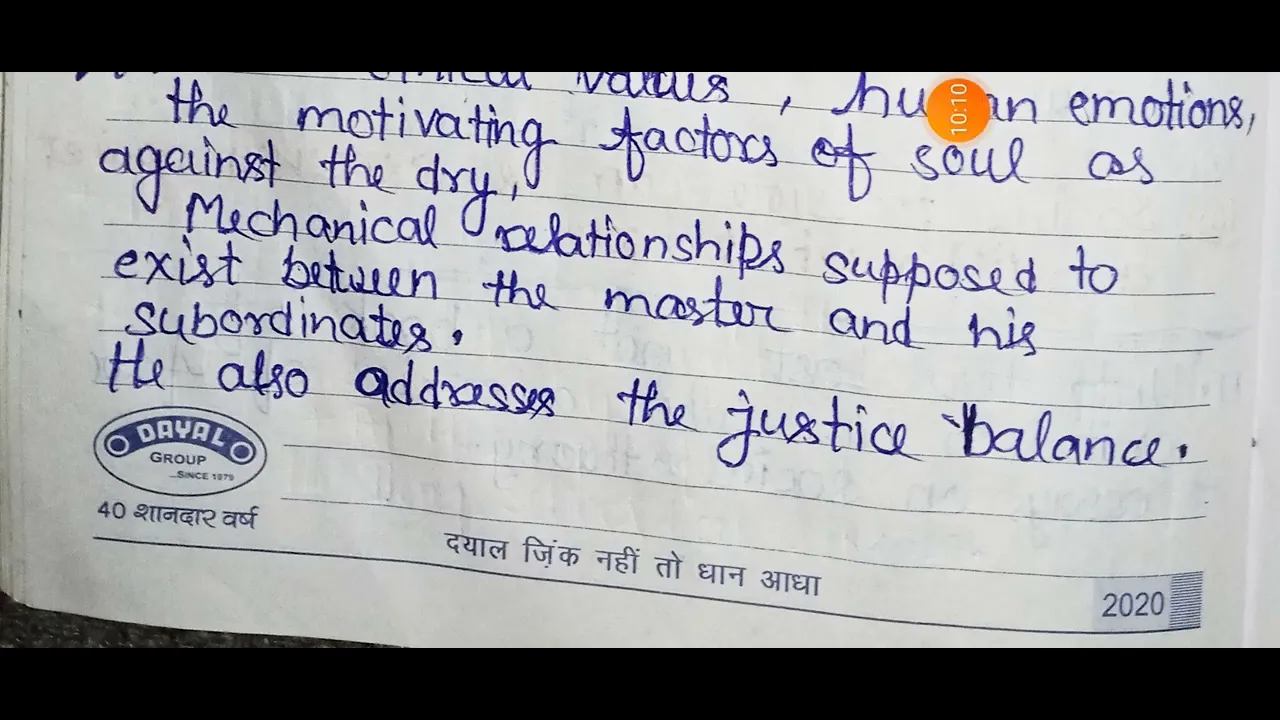 values, human emotions,
the motivating factors of soul as
against the dry,
Mechanical relationships supposed to
exist between the master and his
subordinates.
He also addresses the justice balance.
DAYAL
GROUP
...SINCE 1979
40 शानदार वर्ष
दयाल ज़िंक नहीं तो धान आधा
2020
10:10